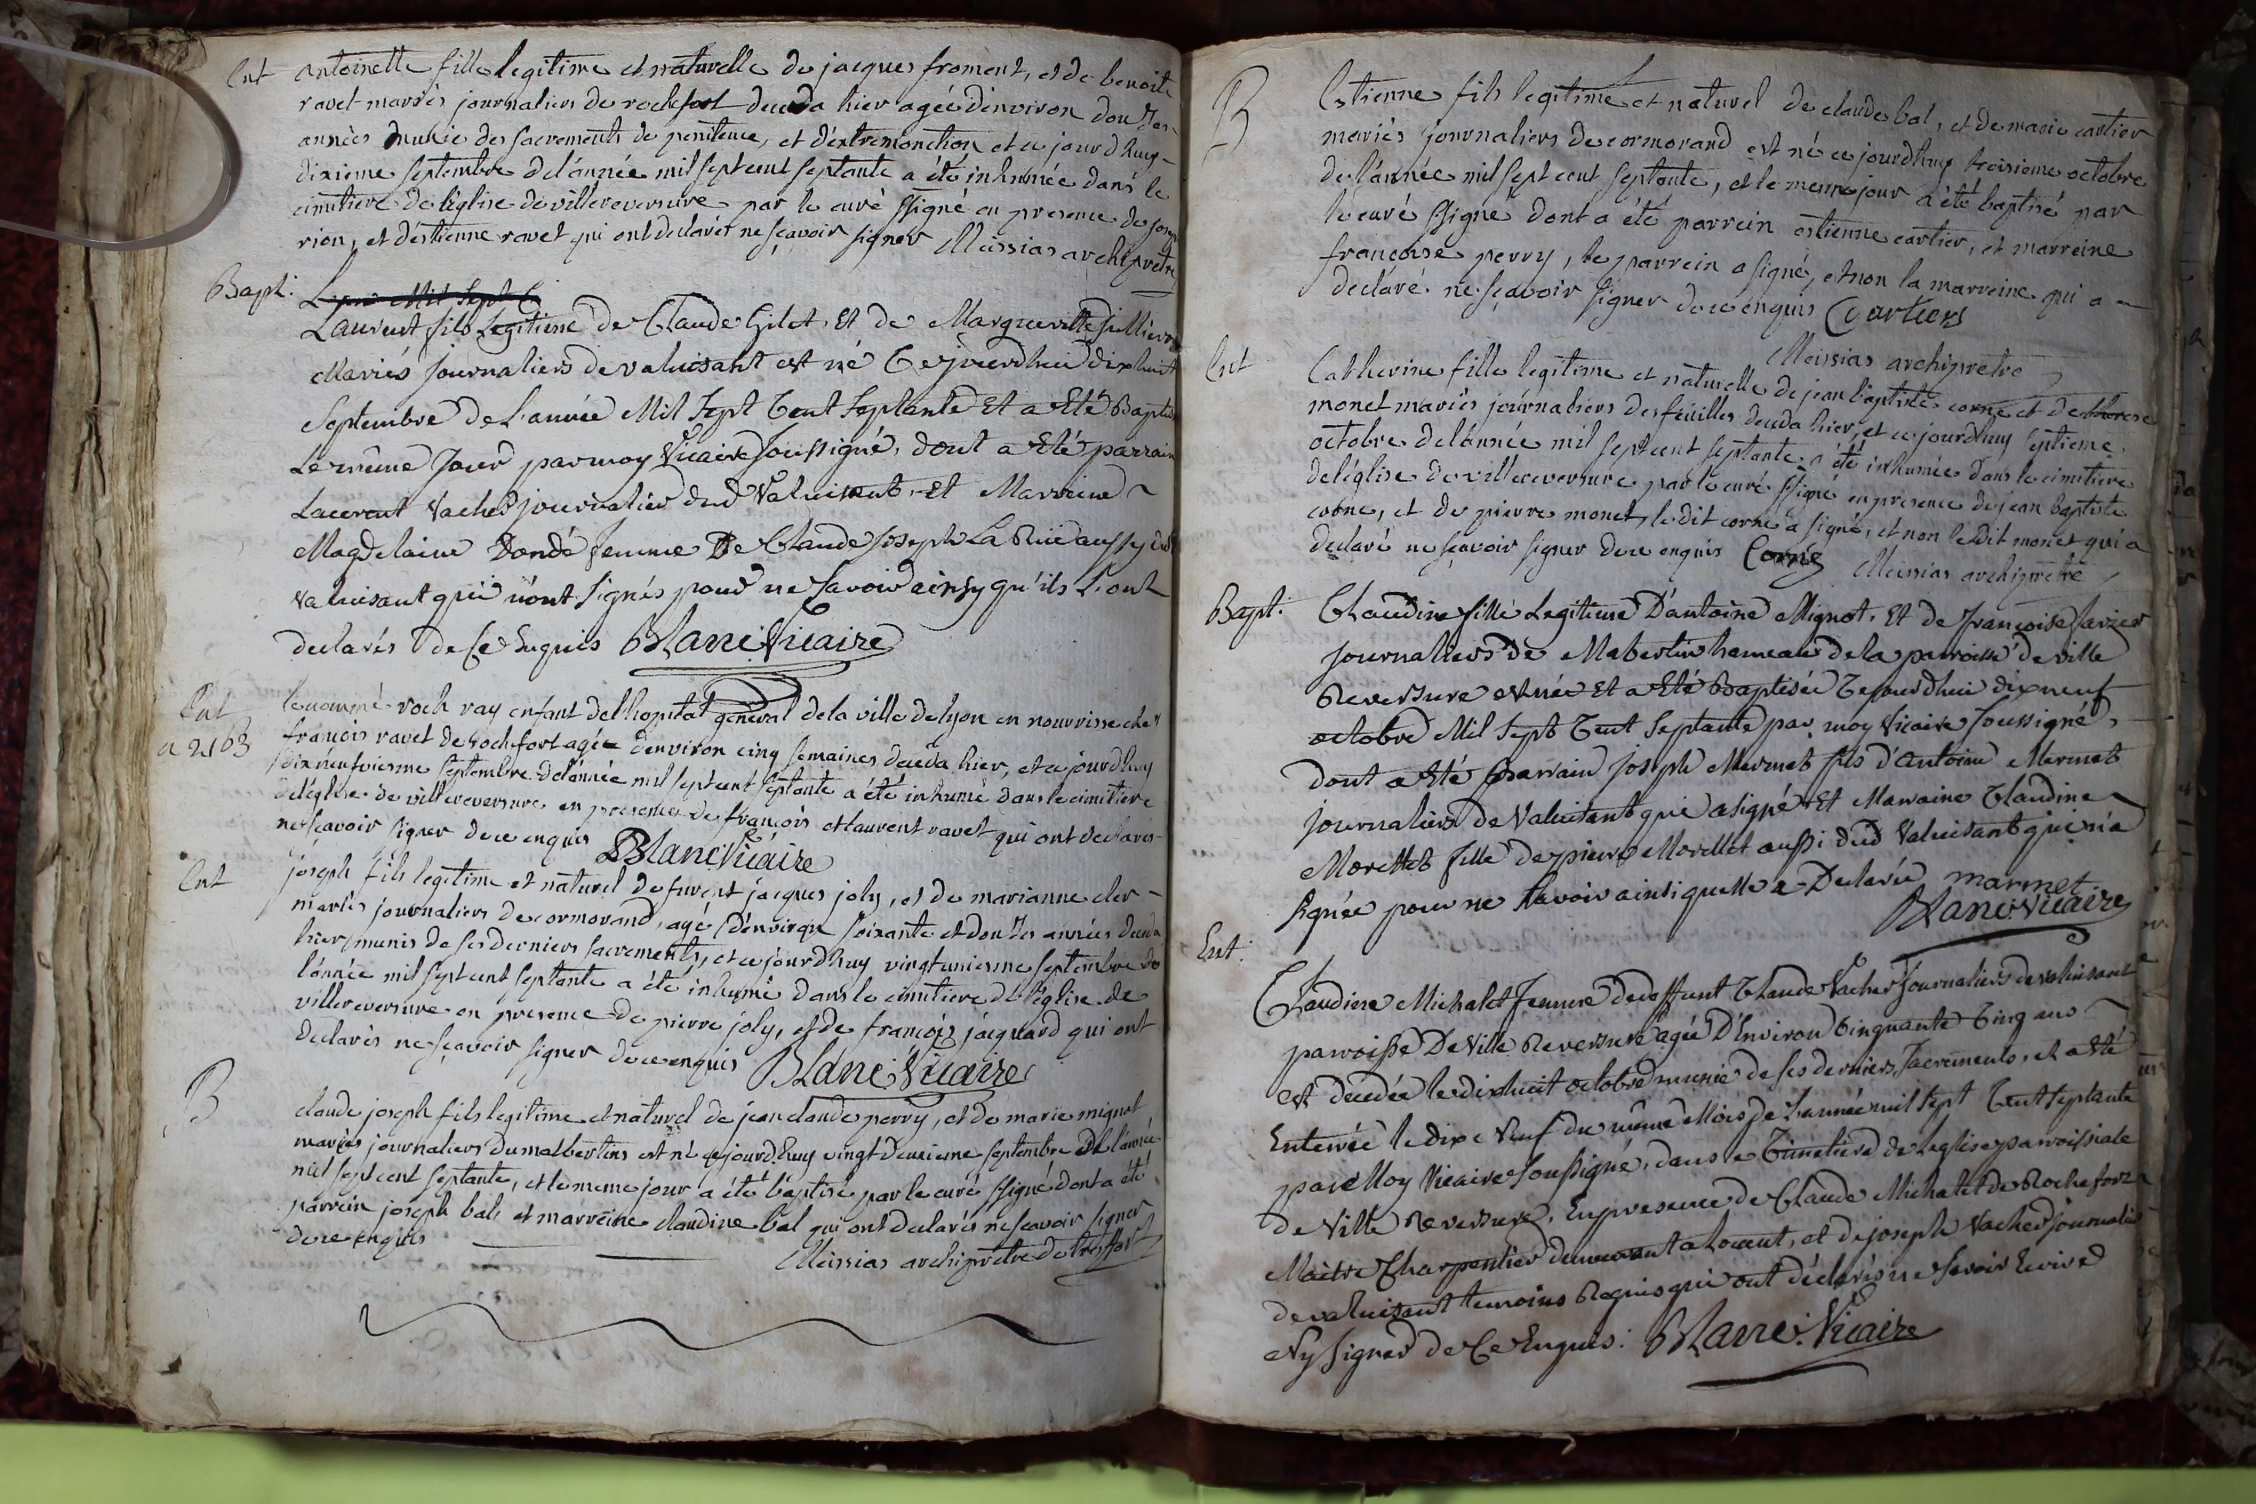 Ent antoinette fille legitime et naturelle de jacques froment, et de benoite
ravet mariés journaliers de rochefort deceda hier agée d'environ douzes
années munie des sacrements de penitence, et d'extremonction et ce jourd'huy
dixieme septembre de l'année mil sept cent septante a été inhumée dans le
cimitiere de l'église de villereversure par le curé ssigné en presence de joseph
rion, et d'estienne ravet qui ont declarés ne sçavoir signer Messias archiprêtre
Bapt:
Laurent fils Legitime de Claude Gilet, Et de Margueritte
Mariés Journaliers de valuisant est né Cejourdhui dixhuit
Septembre de L'année Mil Sept Cent Septante Et a Eté Baptisé
Le même Jour par moy Vicaire Soussigné, dont a Eté parrain
Laurent Vacher journalier dud Valuisant, Et Marraine
Magdelaine Dondé femme De Claude Joseph La Ruë aussy dud
Valuisant qui n'ont signés pour ne Savoir ainsy qu'ils L'ont
declarés de Ce Enquis Blanc Vicaire
Ent
a 2163
le nommé roch ray enfant de l'hopital general de la ville de lyon en nourrisse chez
francois ravet de rochefort agé d'environ cinq semaines deceda hier, et ce jourd'huy
dixneufviesme septembre de l'année mil sept cent septante a été inhumé dans le cimitiere
de l'église de villereversure en presence de francois et laurent ravet qui ont declarés
ne sçavoir signer de ce enquis Blanc Vicaire
Ent joseph fils legitime et naturel de furent jacques joly, et de marianne cler
mariés journaliers de cormorand, agé d'environ soixante et douzes années deceda
hier munis de ses derniers sacrements, et ce jourd'huy vingtunieme septembre de
l'année mil sept cent septante a été inhumé dans le cimitiere de l'église de
villereversure en presence de pierre joly, et de francois jacquard qui ont
declarés ne sçavoir signer de ce enquis Blanc Vicaire
B
claude joseph fils legitime et naturel de jean claude perry, et de marie mignot
mariés journaliers du malbertins est né ce jourd'huy vingt deuxieme septembre de l'année
mil sept cent septante, et le meme jour a été baptisé par le curé ssigné dont a été
parrein joseph bal, et marreine claudine bal qui ont declarés ne sçavoir signer
de ce enquis
Messias archiprêtre de treffort
B
Estienne fils legitime et naturel de claude bal, et de marie cartier
mariés journaliers de cormorand est né ce jourd'huy troisieme octobre
de l'année mil sept cent septante, et le meme jour a été baptisé par
le curé ssigné dont a été parrein estienne cartier, et marreine
francoise perry, le parrein a signé, et non la marreine qui a
declaré ne sçavoir signer de ce enquis Cartiers
Messias archiprêtre
Ent
Catherine fille legitime et naturelle de jean baptiste corne et de therese
monet mariés journaliers des feuilles deceda hier, et ce jourd'huy septieme
octobre de l'année mil sept cent septante a été inhumée dans le cimitiere
de l'église de villereversure par le curé ssigné en presence de jean baptiste
corne, et de pierre monet, le dit corne a signé, et non le dit monet qui a
declaré ne sçavoir signer de ce enquis Corne Messias archiprêtre
Bapt: Claudine fille Legitime D'antoine Mignot, Et de françoise
Journaliers de Malbertin hameau de la paroisse de ville
Reversure est née Et a Eté Baptisée Cejourdhui dixneuf
octobre Mil Sept Cent Septante par moy Vicaire Soussigné,
dont a Eté Parrain Joseph Mermet fils d'Antoine Mermet
journaliers de Valuisant qui a signé Et Marraine Claudine
Morellet fille de pierre Morellet aussi dud Valuisant qui n'a
signée pour ne Savoir ainsi quelle a Declarée marmet
Blanc Vicaire
Ent:
Claudine Michalet femme de deffunt Claude Vacher Journaliers de valuisant
paroisse De Ville Reversure agée D'Environ Cinquante Cinq ans
est decedée le dixhuit octobre munie de ses derniers Sacrements, et a Eté
Enterrée le dixe Neuf du même Mois de L'année mil sept Cent Septante
par Moy Vicaire Soussigné, dans le Cimetiere de Leglise paroissiale
de Ville Reversure, En presence de Claude Michalet de Rochefort
Maitre Charpentier demeurant a et de joseph Vacher Journalier
de valuisant temoins Requis qui ont déclarés ne Savoir Ecrire
Ny Signer de Ce Enquis: Blanc Vicaire